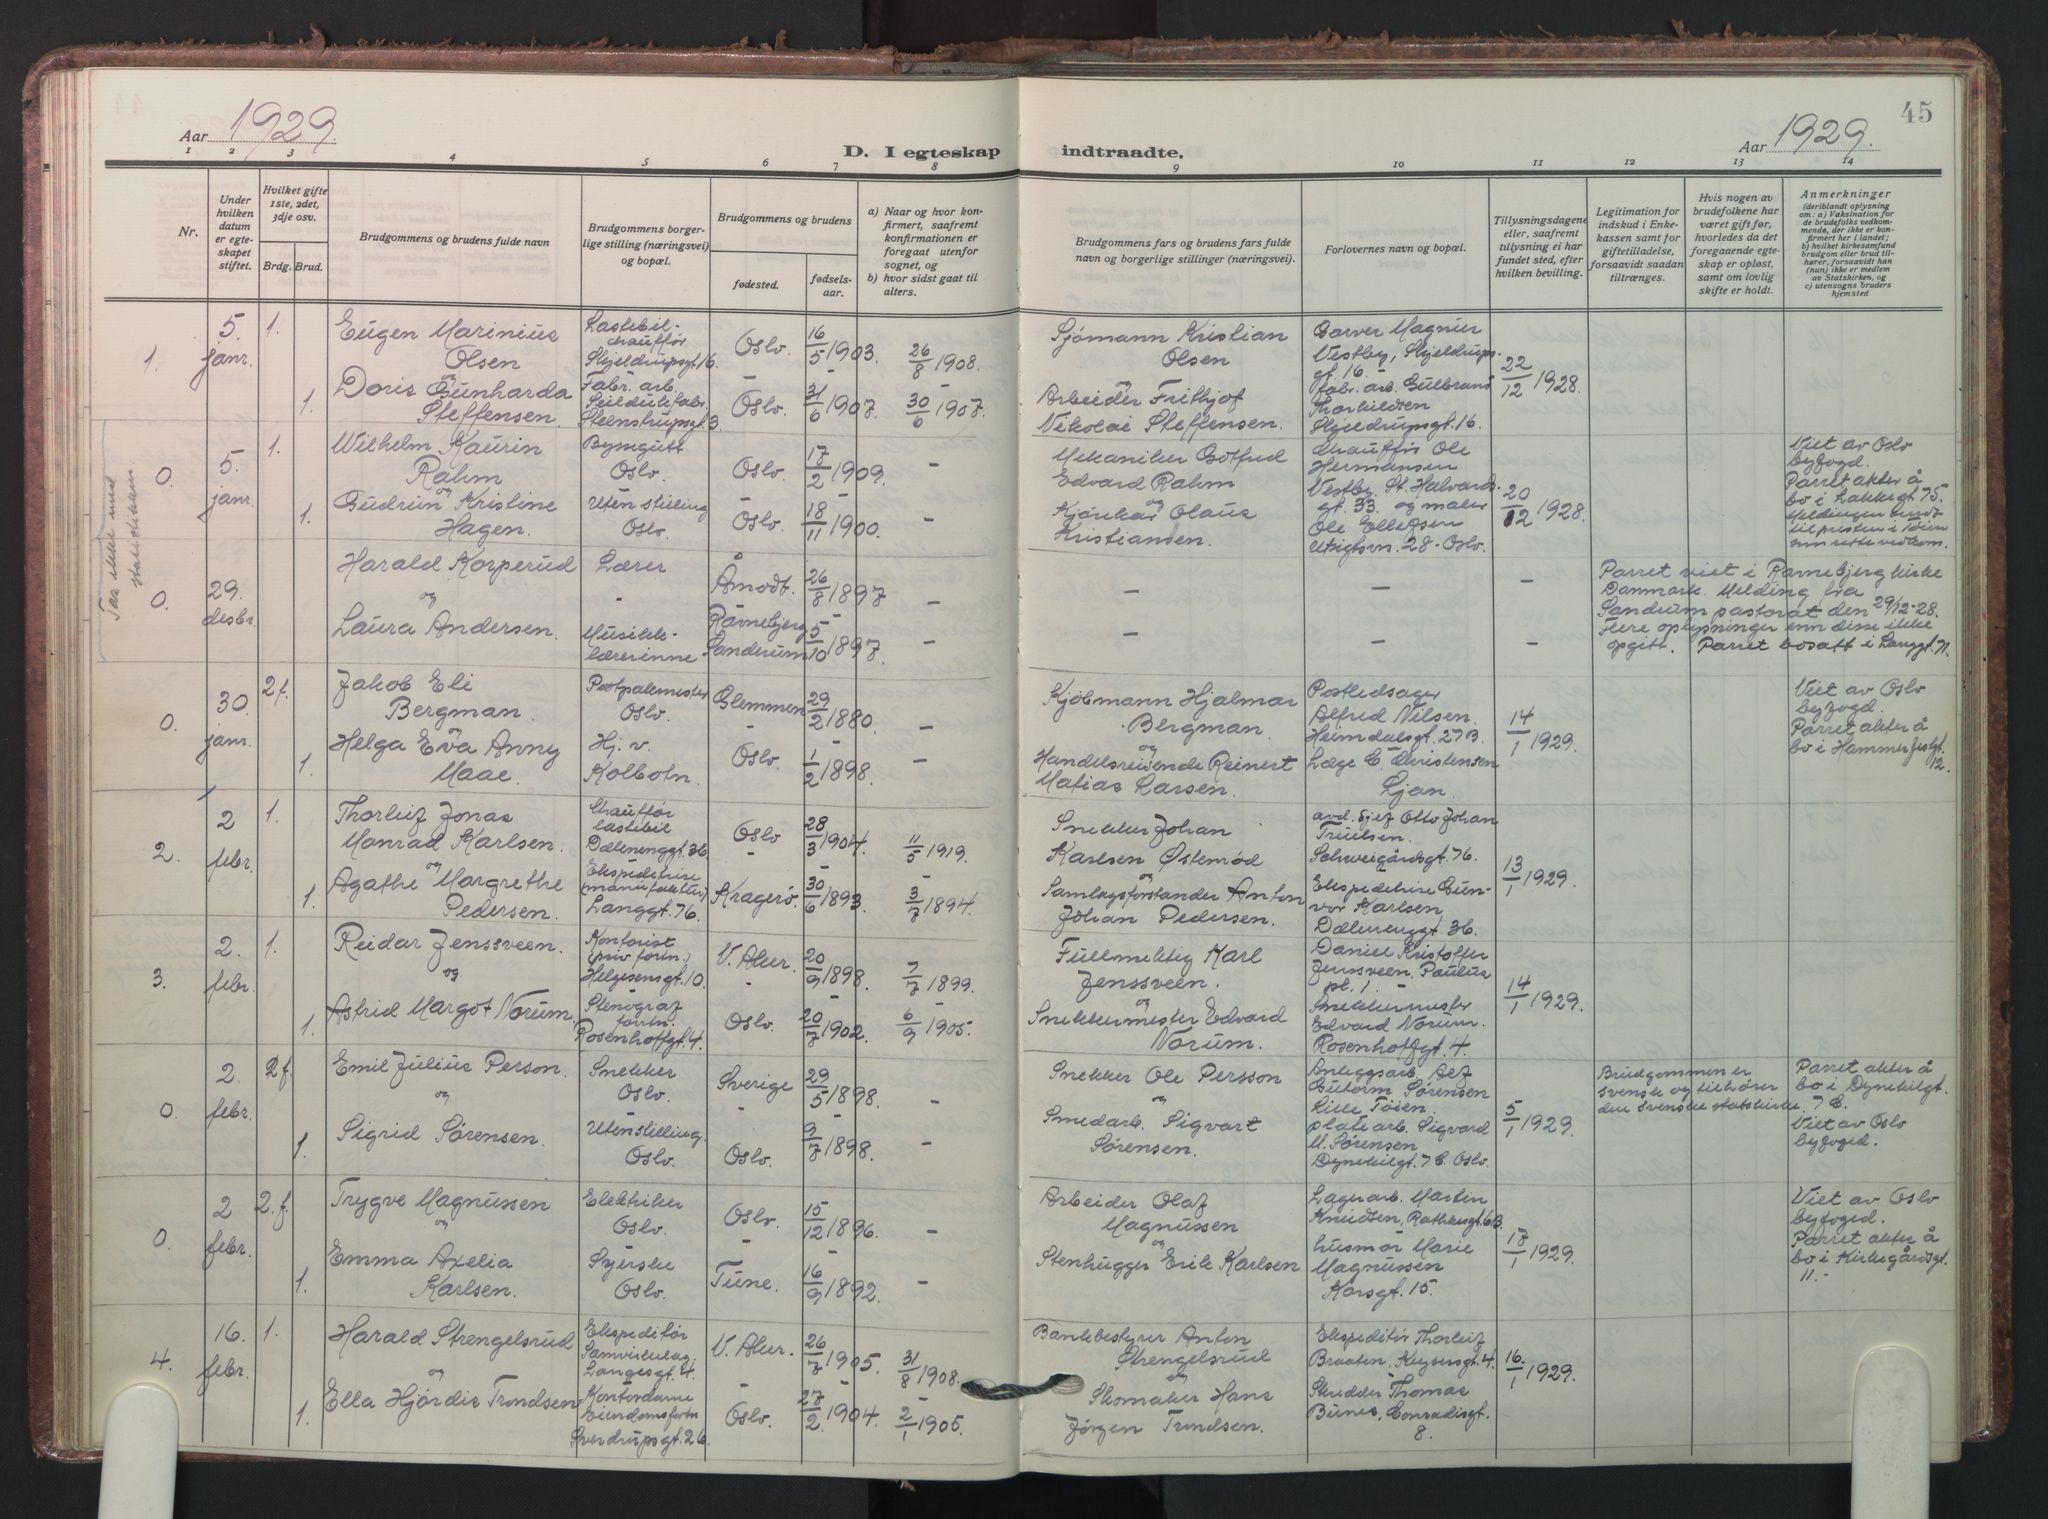 45
Aar 1929.
Aar 1929.
D. I egteskap indtraadte.
1 2 3 4 5 6 7 8 9 10 11 12 13 14
Nr.
Under hvilken datum er egte-skapet stiftet.
Hvilket gifte 1ste, 2det, 3dje osv.
Brdg. Brud.
Brudgommens og brudens fulde navn
Brudgommens borger-lige stilling (næringsvei) og bopæl.
Brudgommens og brudens
fødested.
fødsels-aar.
a) Naar og hvor kon-firmert, saafremt konfirmationen er foregaat utenfor sognet, og
b) hvor sidst gaat til alters.
Brudgommens fars og brudens fars fulde navn og borgerlige stillinger (næringsvei).
Forlovernes navn og bopæl.
Tillysningsdagene eller, saafremt tillysning ei har fundet sted, efter hvilken bevilling.
Legitimation for indskud i Enke-kassen samt for giftetilladelse, forsaavidt saadan tiltrænges.
Hvis nogen av brudefolkene har været gift før, hvorledes da det foregaaende egte-skap er opløst, samt om lovlig skifte er holdt.
Anmerkninger
(deriblandt oplysning om: a) Vaksination for de brudefolks vedkom-mende, der ikke er kon-firmert her i landet; b) hvilket kirkesamfund brudgom eller brud til-hører, forsaavidt han (hun) ikke er medlem av Statskirken, og c) utensogns bruders hjemsted
1. 5. janr. 1.
Eugen Marinius Olsen
Lastebil-chauffør Skjeldrupsgt. 16.
Oslo. 16/5 1903. 26/8 1908.
Sjømann Kristian Olsen
Garver Magnus Vestby, Skjeldrups-gt. 16. -
22/12 1928.
og
1. Doris Gunharda Steffensen.
Fabr. arb. Seildukfabr. Steenstrupsgt. 3.
Oslo. 31/6 1907. 30/6 1907.
Arbeider Frithjof Nikolai Steffensen.
fabr. arb. Gulbrand Thorkildsen Skjeldrupsgt. 16.
Tas ikke med statistikken
0. 5. janr. 1.
Wilhelm Kaurin Rahm
Bymgutt Oslo.
Oslo. 17/2 1909. -
Mekaniker Gotfred Edvard Rahm
Chauffør Ole Hermansen Vestby, St. Halvards-gt. 33. og maler
20/12 1928.
Viet av Oslo byfogd. Parret akter å bo i Lakkegt 75. Meldingen sendt til presten i
og
1. Gudrun Kristine Hagen.
Uten stilling Oslo.
Oslo. 18/11 1900. -
Kjørekar Olaus Kristiansen.
Ole Ellefsen Utsigtsvn. 28 - Oslo.
0. 29. desbr.
Harald Korperud
Lærer
Åmodt. 26/8 1897 -
Parret viet i Ravnebjerg kirke Danmark. Melding fra Sandrum pastorat den 29/12-28. Flere oplysninger enn disse ikke opgitt. Parret bosatt i Langgt. 71.
og
Laura Andersen.
Musikk-lærerinne
Ravnebjerg Sanderum 5/10 1897. -
0. 30. janr. 2f.
Jakob Eli Bergman.
Postpakmester Oslo.
Glemmen 29/2 1880. -
Kjøbmann Hjalmar Bergman.
Postledsager Alfred Nilsen. Heimdalsgt. 27B.
14/1 1929.
Viet av Oslo byfogd. Parret akter å bo i Hammerfestgt. 12.
og
1. Helga Eva Anny Maae.
Hj. v. Kolbotn.
Oslo. 1/2 1898. -
Handelsreisende Reinert Matias Larsen.
Læge E. Christensen Ljan.
2. 2 febr. 1.
Thorleif Jonas Monrad Karlsen.
Chauffør lastebil Dælenenggt. 36.
Oslo 28/3 1904. 11/5 1919.
Snekker Johan Karlsen Østenrød
avd. sjef Otto Johan Truelsen. Schweigårdsgt. 76.
13/1 1929.
og
1. Agathe Margrethe Pedersen.
Ekspeditrise (manufaktur) Langgt. 76.
Kragerø. 30/6 1893. 3/7 1894.
Samlagsforstander Anton Johan Pedersen.
Ekspeditrise Gun-vor Karlsen Dælenenggt. 36.
3. 2. febr. 1.
Reidar Jenssveen.
Kontorist (priv. fortn.) Helgesensgt. 10.
V. Aker. 20/9 1898. 7/7 1899.
Fullmektig Karl Jenssveen.
Daniel Kristoffer Jenssveen. Paulus pl. 1. -
14/1 1929.
og
1. Astrid Margot Norum.
Stenograf fortn. Rosenhoffgt. 4.
Oslo. 20/7 1902. 6/9 1905.
Snekkermester Edvard Norum.
Snekkermester Edvard Norum. Rosenhoffgt. 4.
0. 2. febr. 2f.
Emil Julius Person.
Snekker Oslo.
Sverige 29/5 1898. -
Snekker Ole Persson
Anleggsarb. Alf Gutorm Sørensen Lille Tøien.
5/1 1929.
Brudgommen er svensk og tilhører den svenske statskirke.
Parret akter å bo i Dynekilgt. 7 C. Viet av Oslo byfogd.
og
1. Sigrid Sørensen.
Uten stilling. Oslo.
Oslo. 9/7 1898. -
Smedarb. Sigvart Sørensen.
platearb. Sigvard M. Sørensen Dynekilgt. 7 C. Oslo.
0. 2 febr. 2.f.
Trygve Magnussen
Elektriker Oslo.
Oslo. 15/12 1896. -
Arbeider Olaf Magnussen
Lagerarb. Martin Knudsen, Rathkesgt. 6B.
17/1 1929.
Viet av Oslo byfoged. Parret akter å bo i Kirkegårdsgt. 11. -
og
1. Emma Axelia Karlsen.
Syerske Oslo.
Tune. 16/9 1892. -
Stenhugger Erik Karlsen
husmor Marie Magnussen Korsgt. 15.
4. 16. febr. 1.
Harald Strengelsrud
Ekspeditør Samvirkelag Langesgt. 4.
V. Aker. 26/7 1905. 31/8 1908.
Bankbestyrer Anton Strengelsrud
Ekspeditør Thorleif Braaten, Keysersgt. 4.
16/1 1929.
og
1. Ella Hjørdis Trondsen
Kontordame Eiendomsfortn Sverdrupsgt. 26.
Oslo. 27/2 1904. 2/1 1905.
Skomaker Hans Jørgen Trondsen.
Skredder Thomas Bunes, Conradisgt. 8.